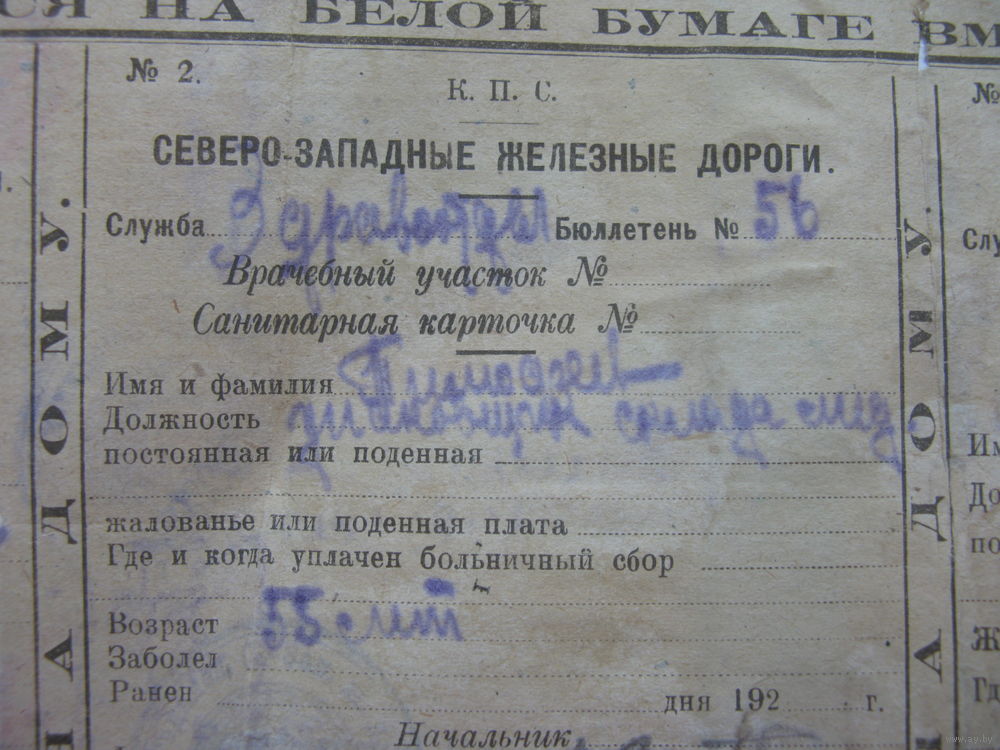 СЯ НА БЕЛОЙ БУМАГЕ ВМ
№ 2.
К. П. С.
СЕВЕРО-ЗАПАДНЫЕ ЖЕЛЕЗНЫЕ ДОРОГИ.
Служба Бюллетень № 56
Врачебный участок №
Санитарная карточка №
Имя и фамилия Тимофей
Должность
постоянная или поденная
жалованье или поденная плата
Где и когда уплачен больничный сбор
Возраст 55 лет
Заболел
Ранен дня 192 г.
Начальник
НА ДОМУ.
НА ДОМУ.
№
Слу
Им
До
по
Ж
Гд
www.ay.by